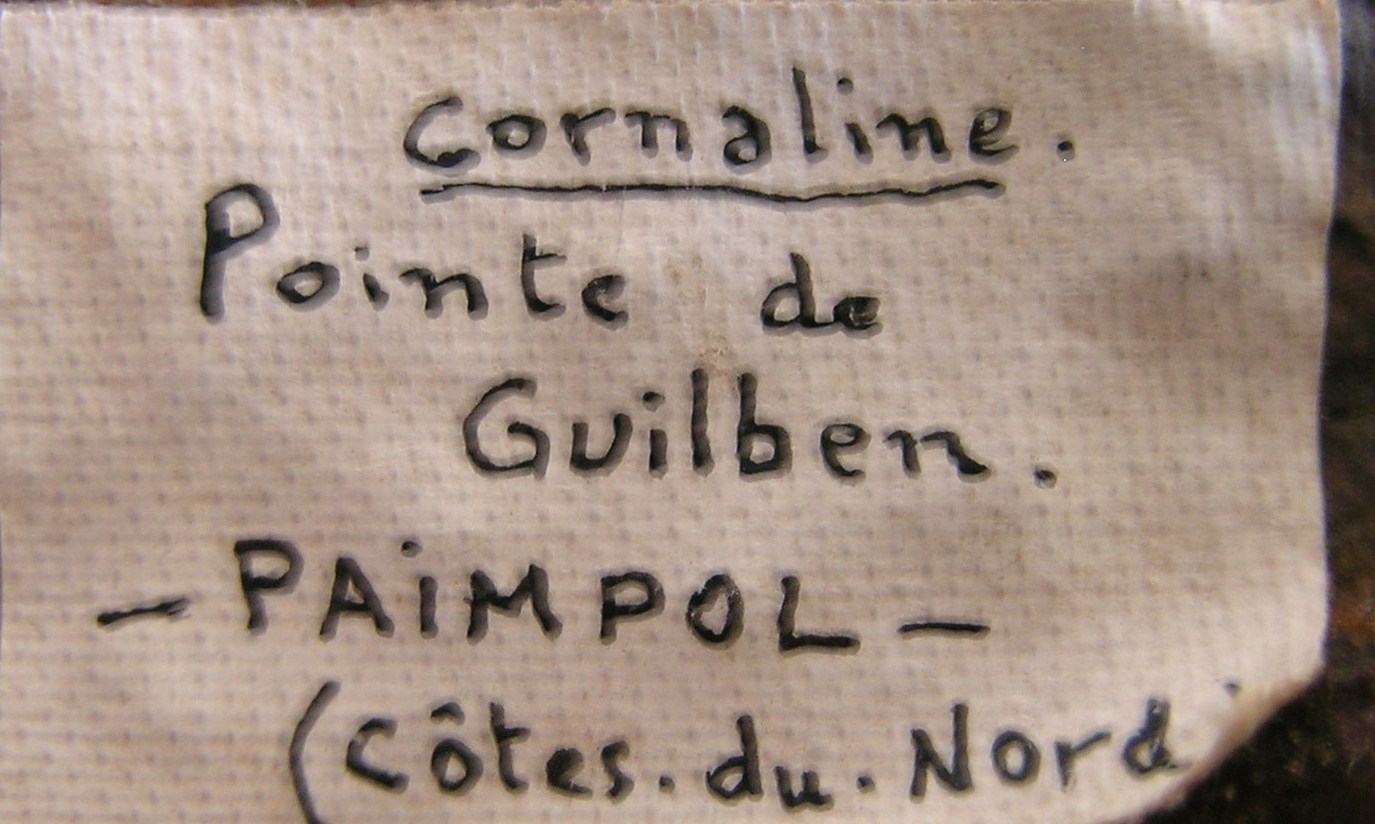 Cornaline.
Pointe de
Guilben.
- PAiMPOL -
(Côtes.du.Nord)